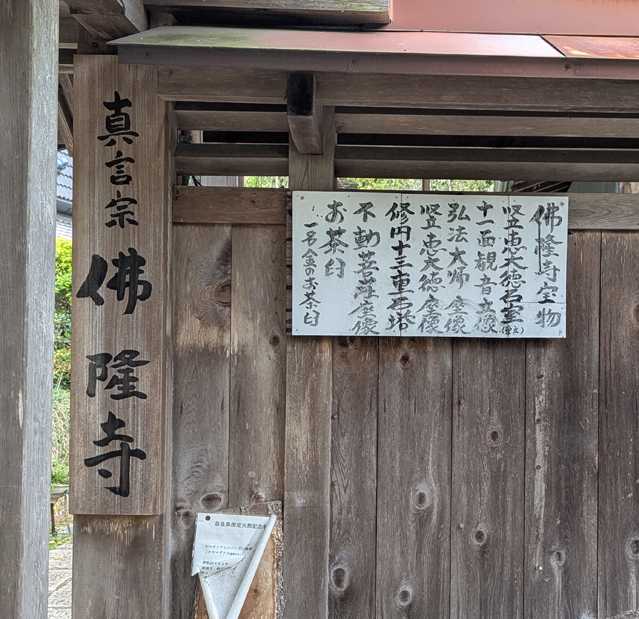 真言宗 佛隆寺
佛隆寺宝物
竪恵大徳石室(重文)
十一面観音立像
弘法大師座像
竪恵大徳座像
修円十三重石塔
不動菩薩座像
お茶臼
一名金のお茶臼